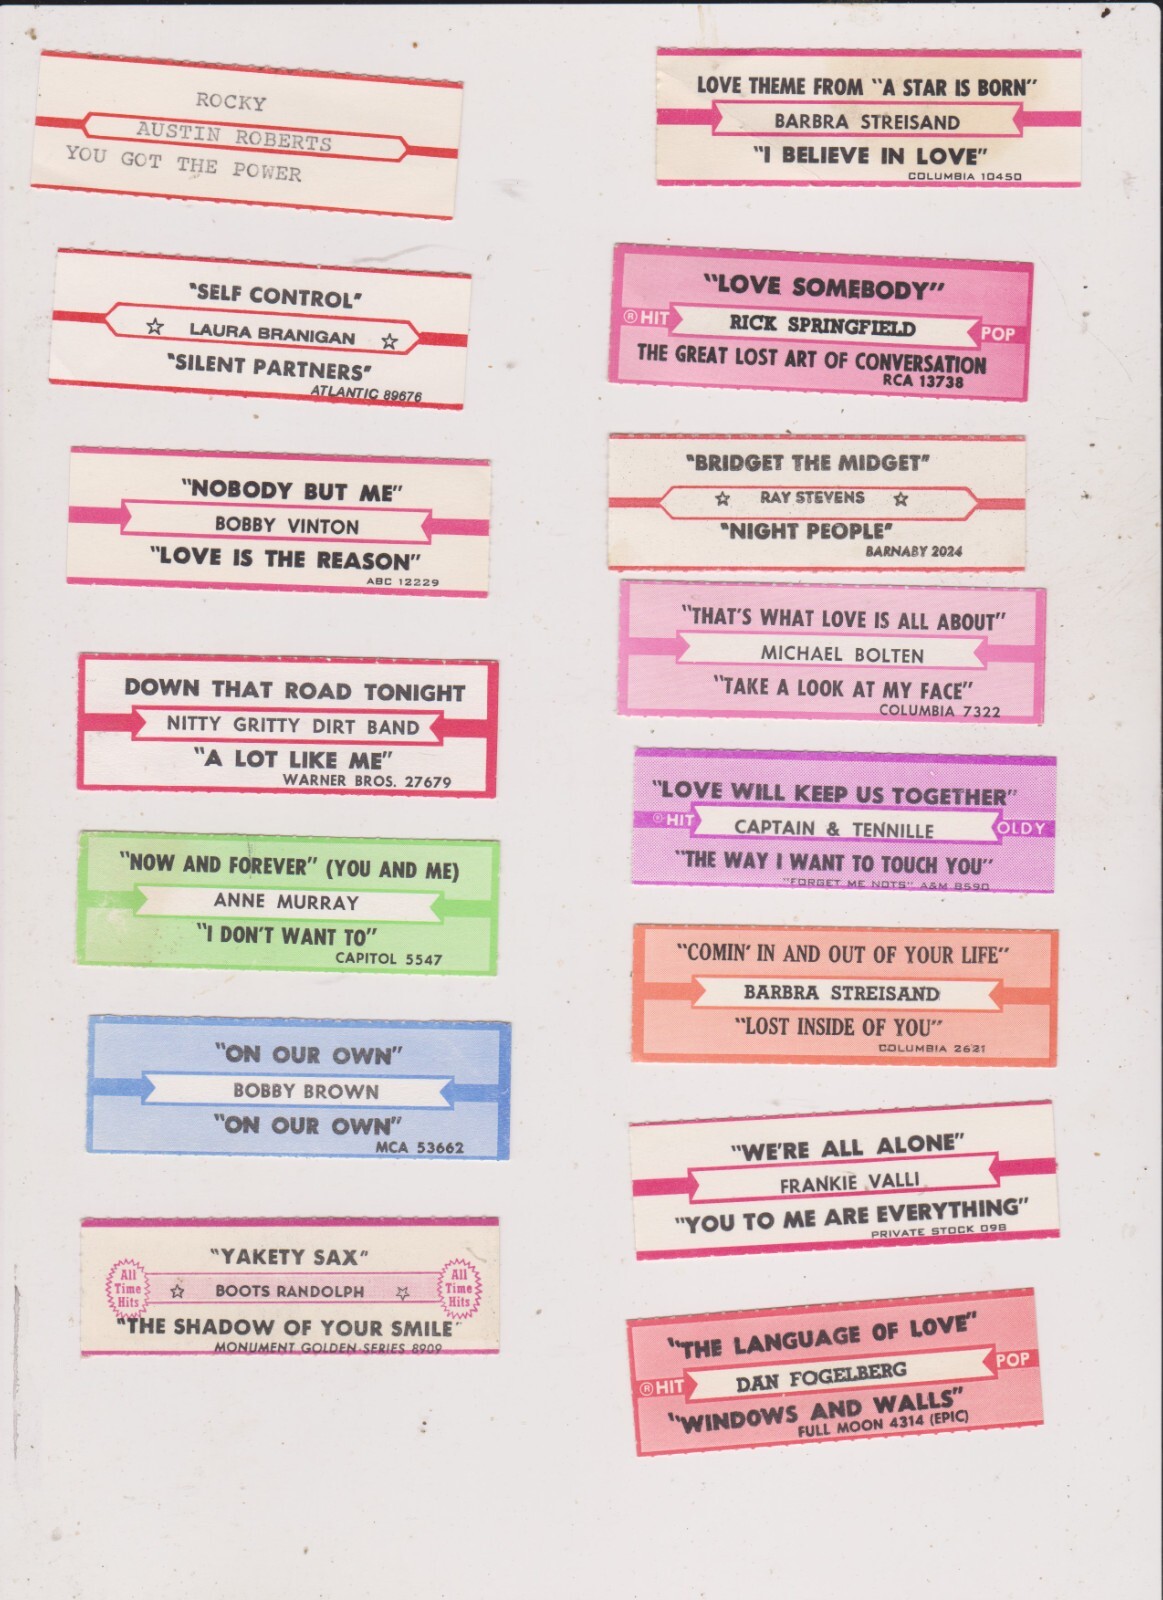 ROCKY
AUSTIN ROBERTS
YOU GOT THE POWER
"SELF CONTROL"
☆ LAURA BRANIGAN ☆
"SILENT PARTNERS"
ATLANTIC 89676
"NOBODY BUT ME"
BOBBY VINTON
"LOVE IS THE REASON"
ABC 12229
DOWN THAT ROAD TONIGHT
NITTY GRITTY DIRT BAND
"A LOT LIKE ME"
WARNER BROS. 27679
"NOW AND FOREVER" (YOU AND ME)
ANNE MURRAY
"I DON'T WANT TO"
CAPITOL 5547
"ON OUR OWN"
BOBBY BROWN
"ON OUR OWN"
MCA 53662
"YAKETY SAX"
All Time Hits
☆ BOOTS RANDOLPH ☆
All Time Hits
"THE SHADOW OF YOUR SMILE"
MONUMENT GOLDEN-SERIES 8909
LOVE THEME FROM "A STAR IS BORN"
BARBRA STREISAND
"I BELIEVE IN LOVE"
COLUMBIA 10450
"LOVE SOMEBODY"
® HIT RICK SPRINGFIELD POP
THE GREAT LOST ART OF CONVERSATION
RCA 13738
"BRIDGET THE MIDGET"
☆ RAY STEVENS ☆
"NIGHT PEOPLE"
BARNABY 2024
"THAT'S WHAT LOVE IS ALL ABOUT"
MICHAEL BOLTEN
"TAKE A LOOK AT MY FACE"
COLUMBIA 7322
"LOVE WILL KEEP US TOGETHER"
® HIT CAPTAIN & TENNILLE OLDY
"THE WAY I WANT TO TOUCH YOU"
"FORGET ME NOTS" A&M 8590
"COMIN' IN AND OUT OF YOUR LIFE"
BARBRA STREISAND
"LOST INSIDE OF YOU"
COLUMBIA 2621
"WE'RE ALL ALONE"
FRANKIE VALLI
"YOU TO ME ARE EVERYTHING"
PRIVATE STOCK 098
"THE LANGUAGE OF LOVE"
® HIT DAN FOGELBERG POP
"WINDOWS AND WALLS"
FULL MOON 4314 (EPIC)